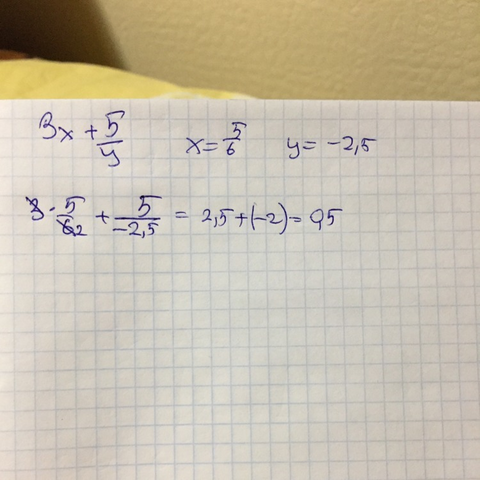 3x + 5/y x = 5/6 y = -2,5
3 · 5/6 2 + 5/-2,5 = 2,5 + (-2) = 0,5